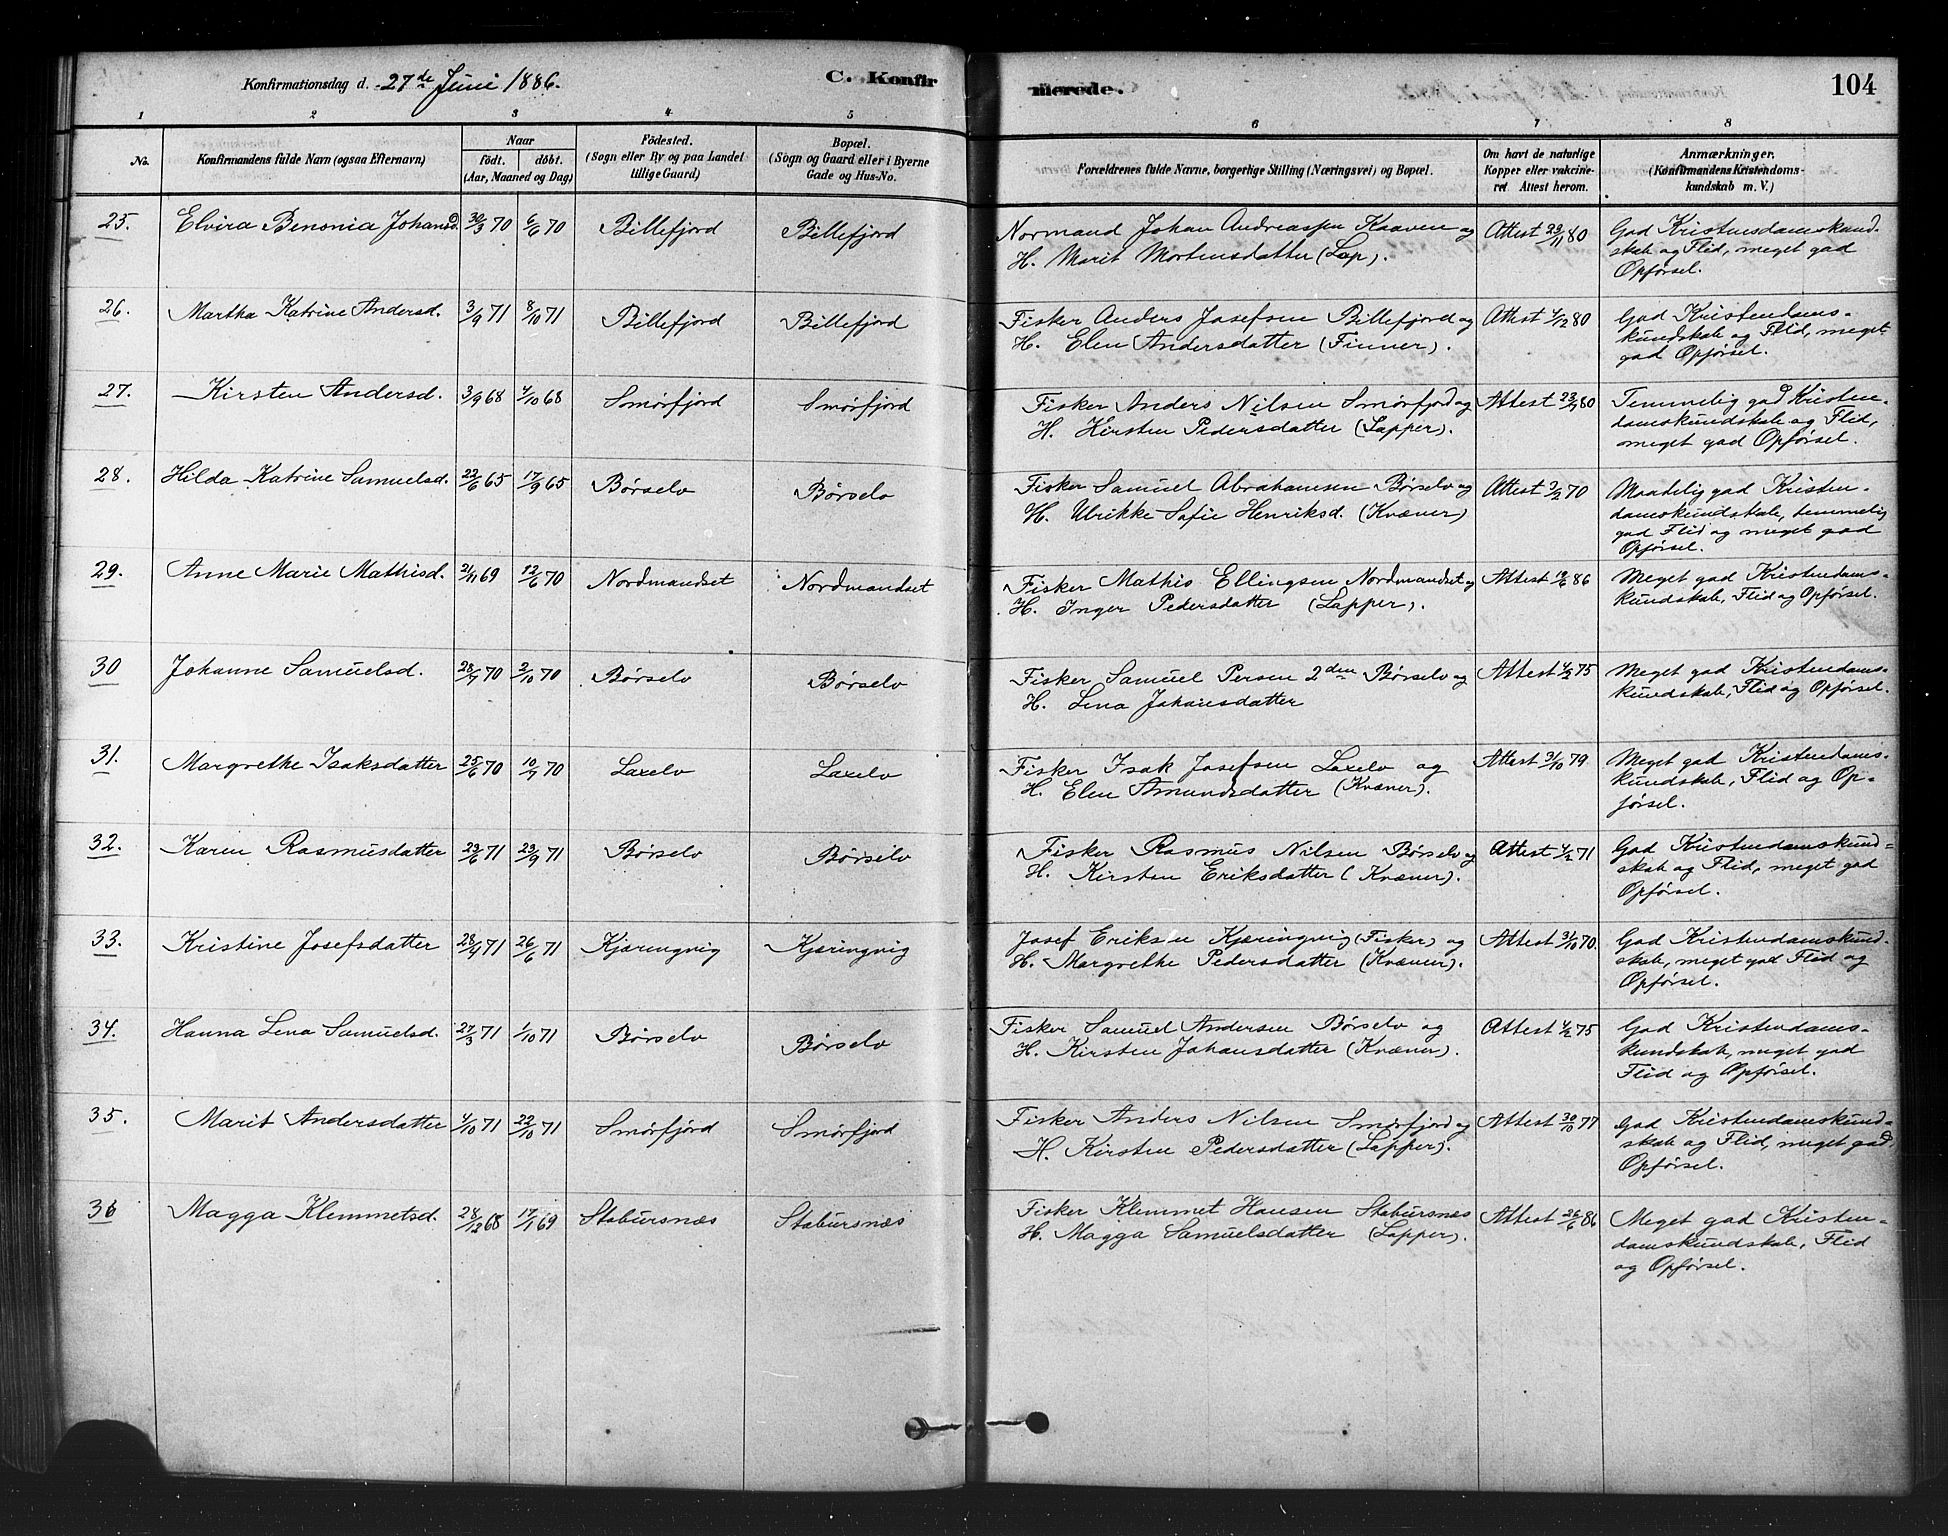 Konfirmationsdag d. 27de Juni 1886.
C. Konfir
merede.
104
1 2 3 4 5 6 7 8
No.
Konfirmandens fulde Navn (ogsaa Efternavn)
Naar
födt. döbt.
(Aar, Maaned og Dag)
Födested.
(Sogn eller By og paa Landet
tillige Gaard)
Bopæl.
(Sogn og Gaard eller i Byerne
Gade og Hus-No.
Forældrenes fulde Navne, borgerlige Stilling (Næringsvei) og Bopæl.
Om havt de naturlige
Kopper eller vakcine-
ret. Attest herom.
Anmærkninger.
(Konfirmandens Kristendoms-
kundskab m. V.)
25. Elvira Benonia Johansd. 30/3 70 6/6 70 Billefjord Billefjord
Normand Johan Andreassen Kaaven og
H. Marit Mortensdatter (Lap).
Attest 23/11 80
God Kristendomskund-
skab og Flid, meget god
Opførsel.
26. Martha Katrine Andersd. 3/9 71 8/10 71 Billefjord Billefjord
Fisker Anders Josefsen Billefjord og
H. Elen Andersdatter (Finner).
Attest 4/12 80
God Kristendoms-
kundskab og Flid, meget
god Opførsel.
27. Kirsten Andersd. 3/9 68 4/10 68 Smørfjord Smørfjord
Fisker Anders Nilsen Smørfjord og
H. Kirsten Pedersdatter (Lapper).
Attest 80
Temmelig god Kristen-
domskundskab og Flid,
meget god Opførsel.
28. Hilda Katrine Samuelsd. 22/6 65 17/9 65 Børselv Børselv
Fisker Samuel Abrahamsen Børselv og
H. Ulrikke Sofie Henriksd. (Kvæner)
Attest 70
Maadelig god Kristen-
domskundskab, temmelig
god Flid og meget god
Opførsel.
29. Anne Marie Mathisd. 21/11 69 12/6 70 Nordmandset Nordmandset
Fisker Mathis Ellingsen Nordmandset og
H. Inger Pedersdatter (Lapper).
Attest 86
Meget god Kristendoms-
kundskab, Flid og Opførsel.
30 Johanne Samuelsd. 28/7 70 2/10 70 Børselv Børselv
Fisker Samuel Persen 2den Børselv og
H. Lena Johansdatter
Attest 4/2 75
Meget god Kristendoms-
kundskab, Flid og Opførsel.
31. Margrethe Isaksdatter 25/6 70 10/7 70 Laxelv Laxelv
Fisker Isak Josefsen Laxelv og
H. Elen Amundsdatter (Kvæner).
Attest 31/10 79
Meget god Kristendoms-
kundskab, Flid og Op-
førsel.
32. Karen Rasmusdatter 23/6 71 23/9 71 Børselv Børselv
Fisker Rasmus Nilsen Børselv og
H. Kirsten Eriksdatter (Kvæner).
Attest 4/2 71
God Kristendomskund-
skab og Flid, meget god
Opførsel.
33. Kristine Josefsdatter 28/4 71 26/6 71 Kjæringvig Kjæringvig
Josef Eriksen Kjæringvig (Fisker) og
H. Margrethe Pedersdatter (Kvæner).
Attest 31/10 70
God Kristendomskund-
skab, meget god Flid og
Opførsel.
34. Hanna Lena Samuelsd. 27/3 71 1/10 71 Børselv Børselv
Fisker Samuel Andersen Børselv og
H. Kirsten Johansdatter (Kvæner).
Attest 4/2 75
God Kristendoms-
kundskab, meget god
Flid og Opførsel.
35. Marit Andersdatter 4/10 71 22/10 71 Smørfjord Smørfjord
Fisker Anders Nilsen Smørfjord og
H. Kirsten Pedersdatter (Lapper).
Attest 30/10 77
God Kristendomskund-
skab og Flid, meget god
Opførsel.
36 Magga Klemmetsd. 28/12 68 17/1 69 Stabursnæs Stabursnæs
Fisker Klemmet Hansen Stabursnæs
H. Magga Samuelsdatter (Lapper).
Attest 26/6 86
Meget god Kristen-
domskundskab, Flid
og Opførsel.